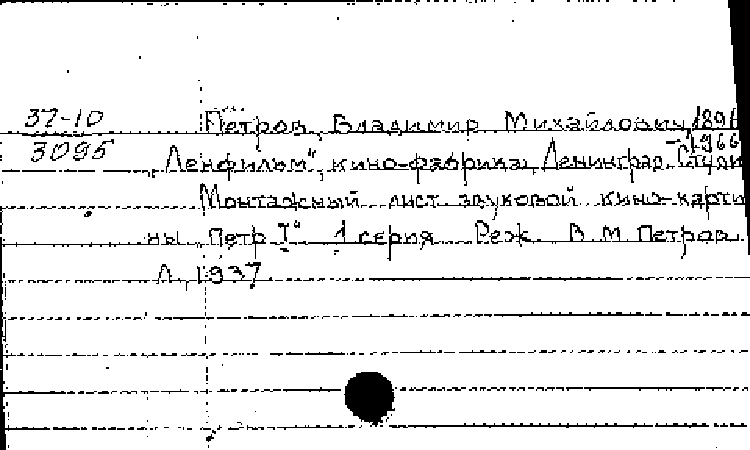 37-10
3095
Петров, Владимир Михайлович, 1896
-1966
"Ленфильм", кино-фабрика, Ленинград. Студи
Монтажный лист звуковой кино-карти
ны "Петр I" 1 серия Реж. В. М. Петров.
Л., 1937